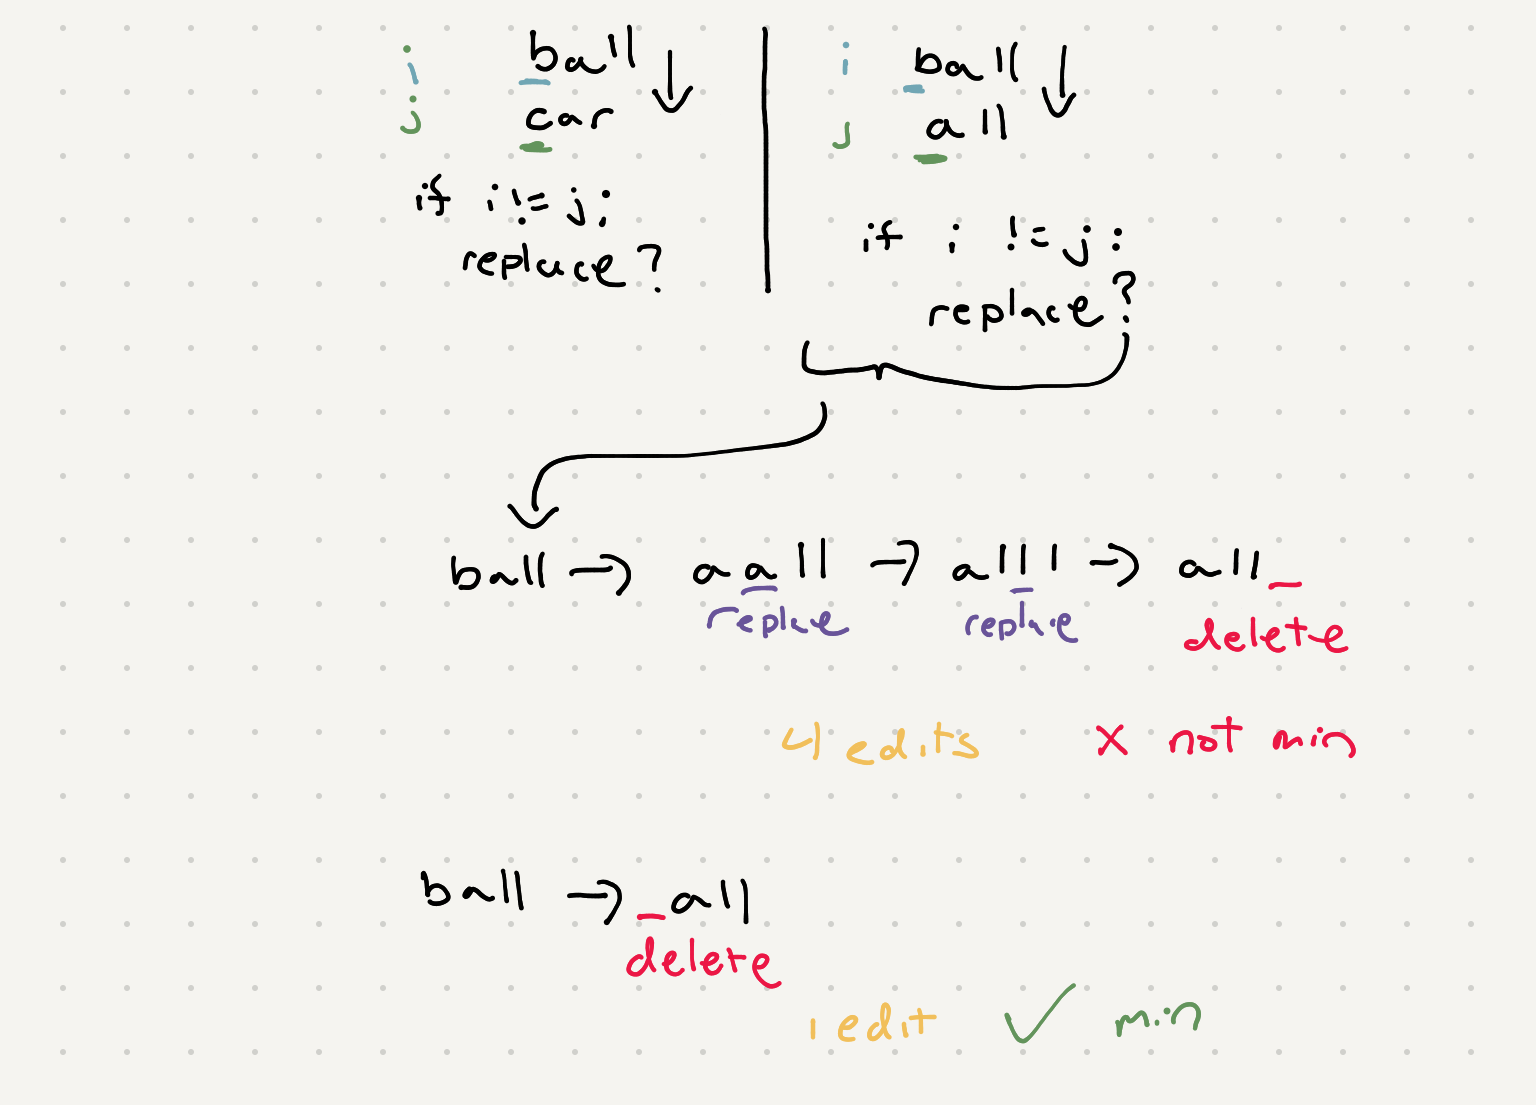 i ball
j car
if i != j:
replace?
i ball
j all
if i != j:
replace?
ball → aall → alll → all_
replace replace delete
4 edits x not min
ball → _all
delete
1 edit ✓ min